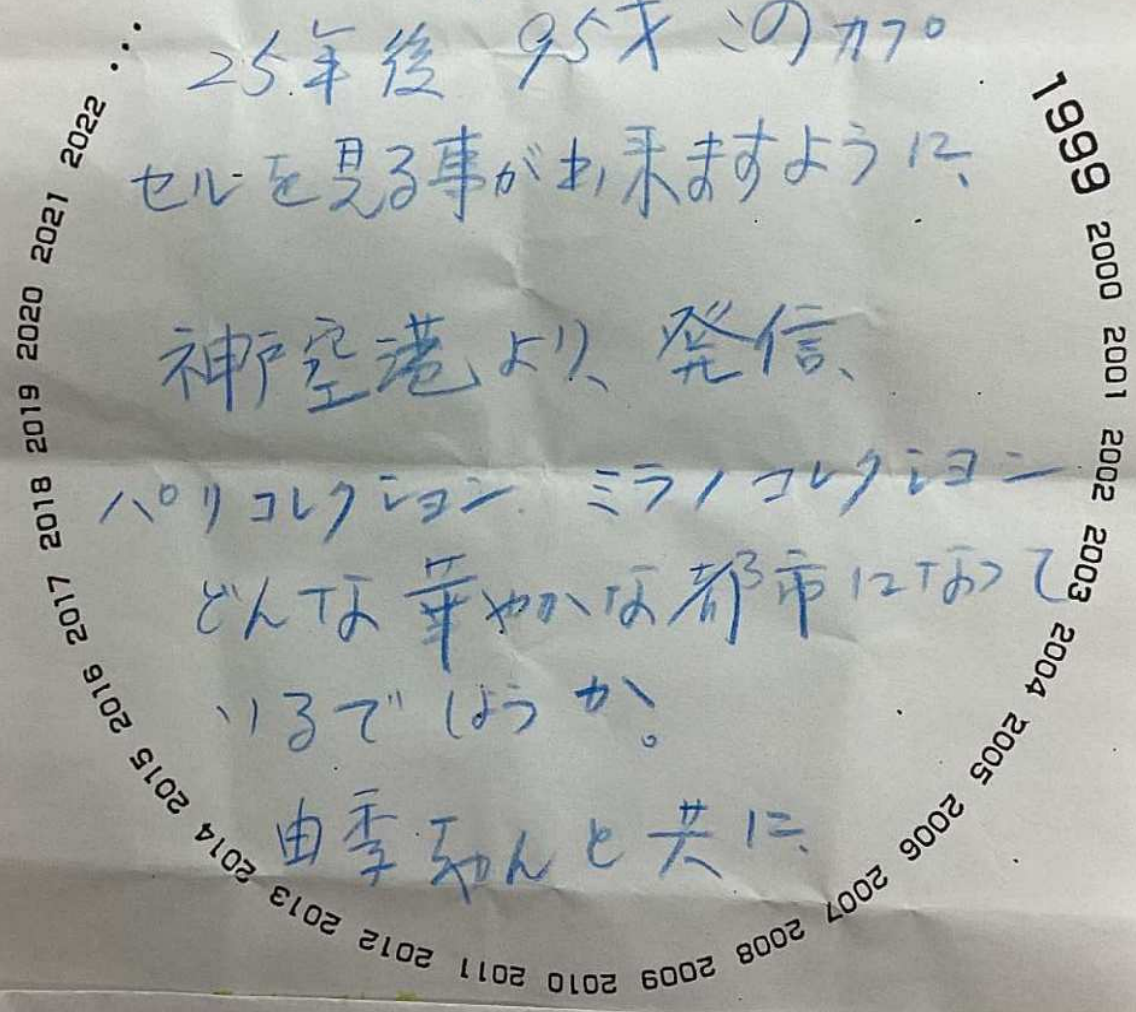 25年後 95才 このカプ
セルを見る事が出来ますように、
神戸空港より、発信、
パリコレクション ミラノコレクション
どんな華やかな都市になって
いるでしょうか。
由季ちゃんと共に、
1999 2000 2001 2002 2003 2004 2005 2006 2007 2008 2009 2010 2011 2012 2013 2014 2015 2016 2017 2018 2019 2020 2021 2022 ...